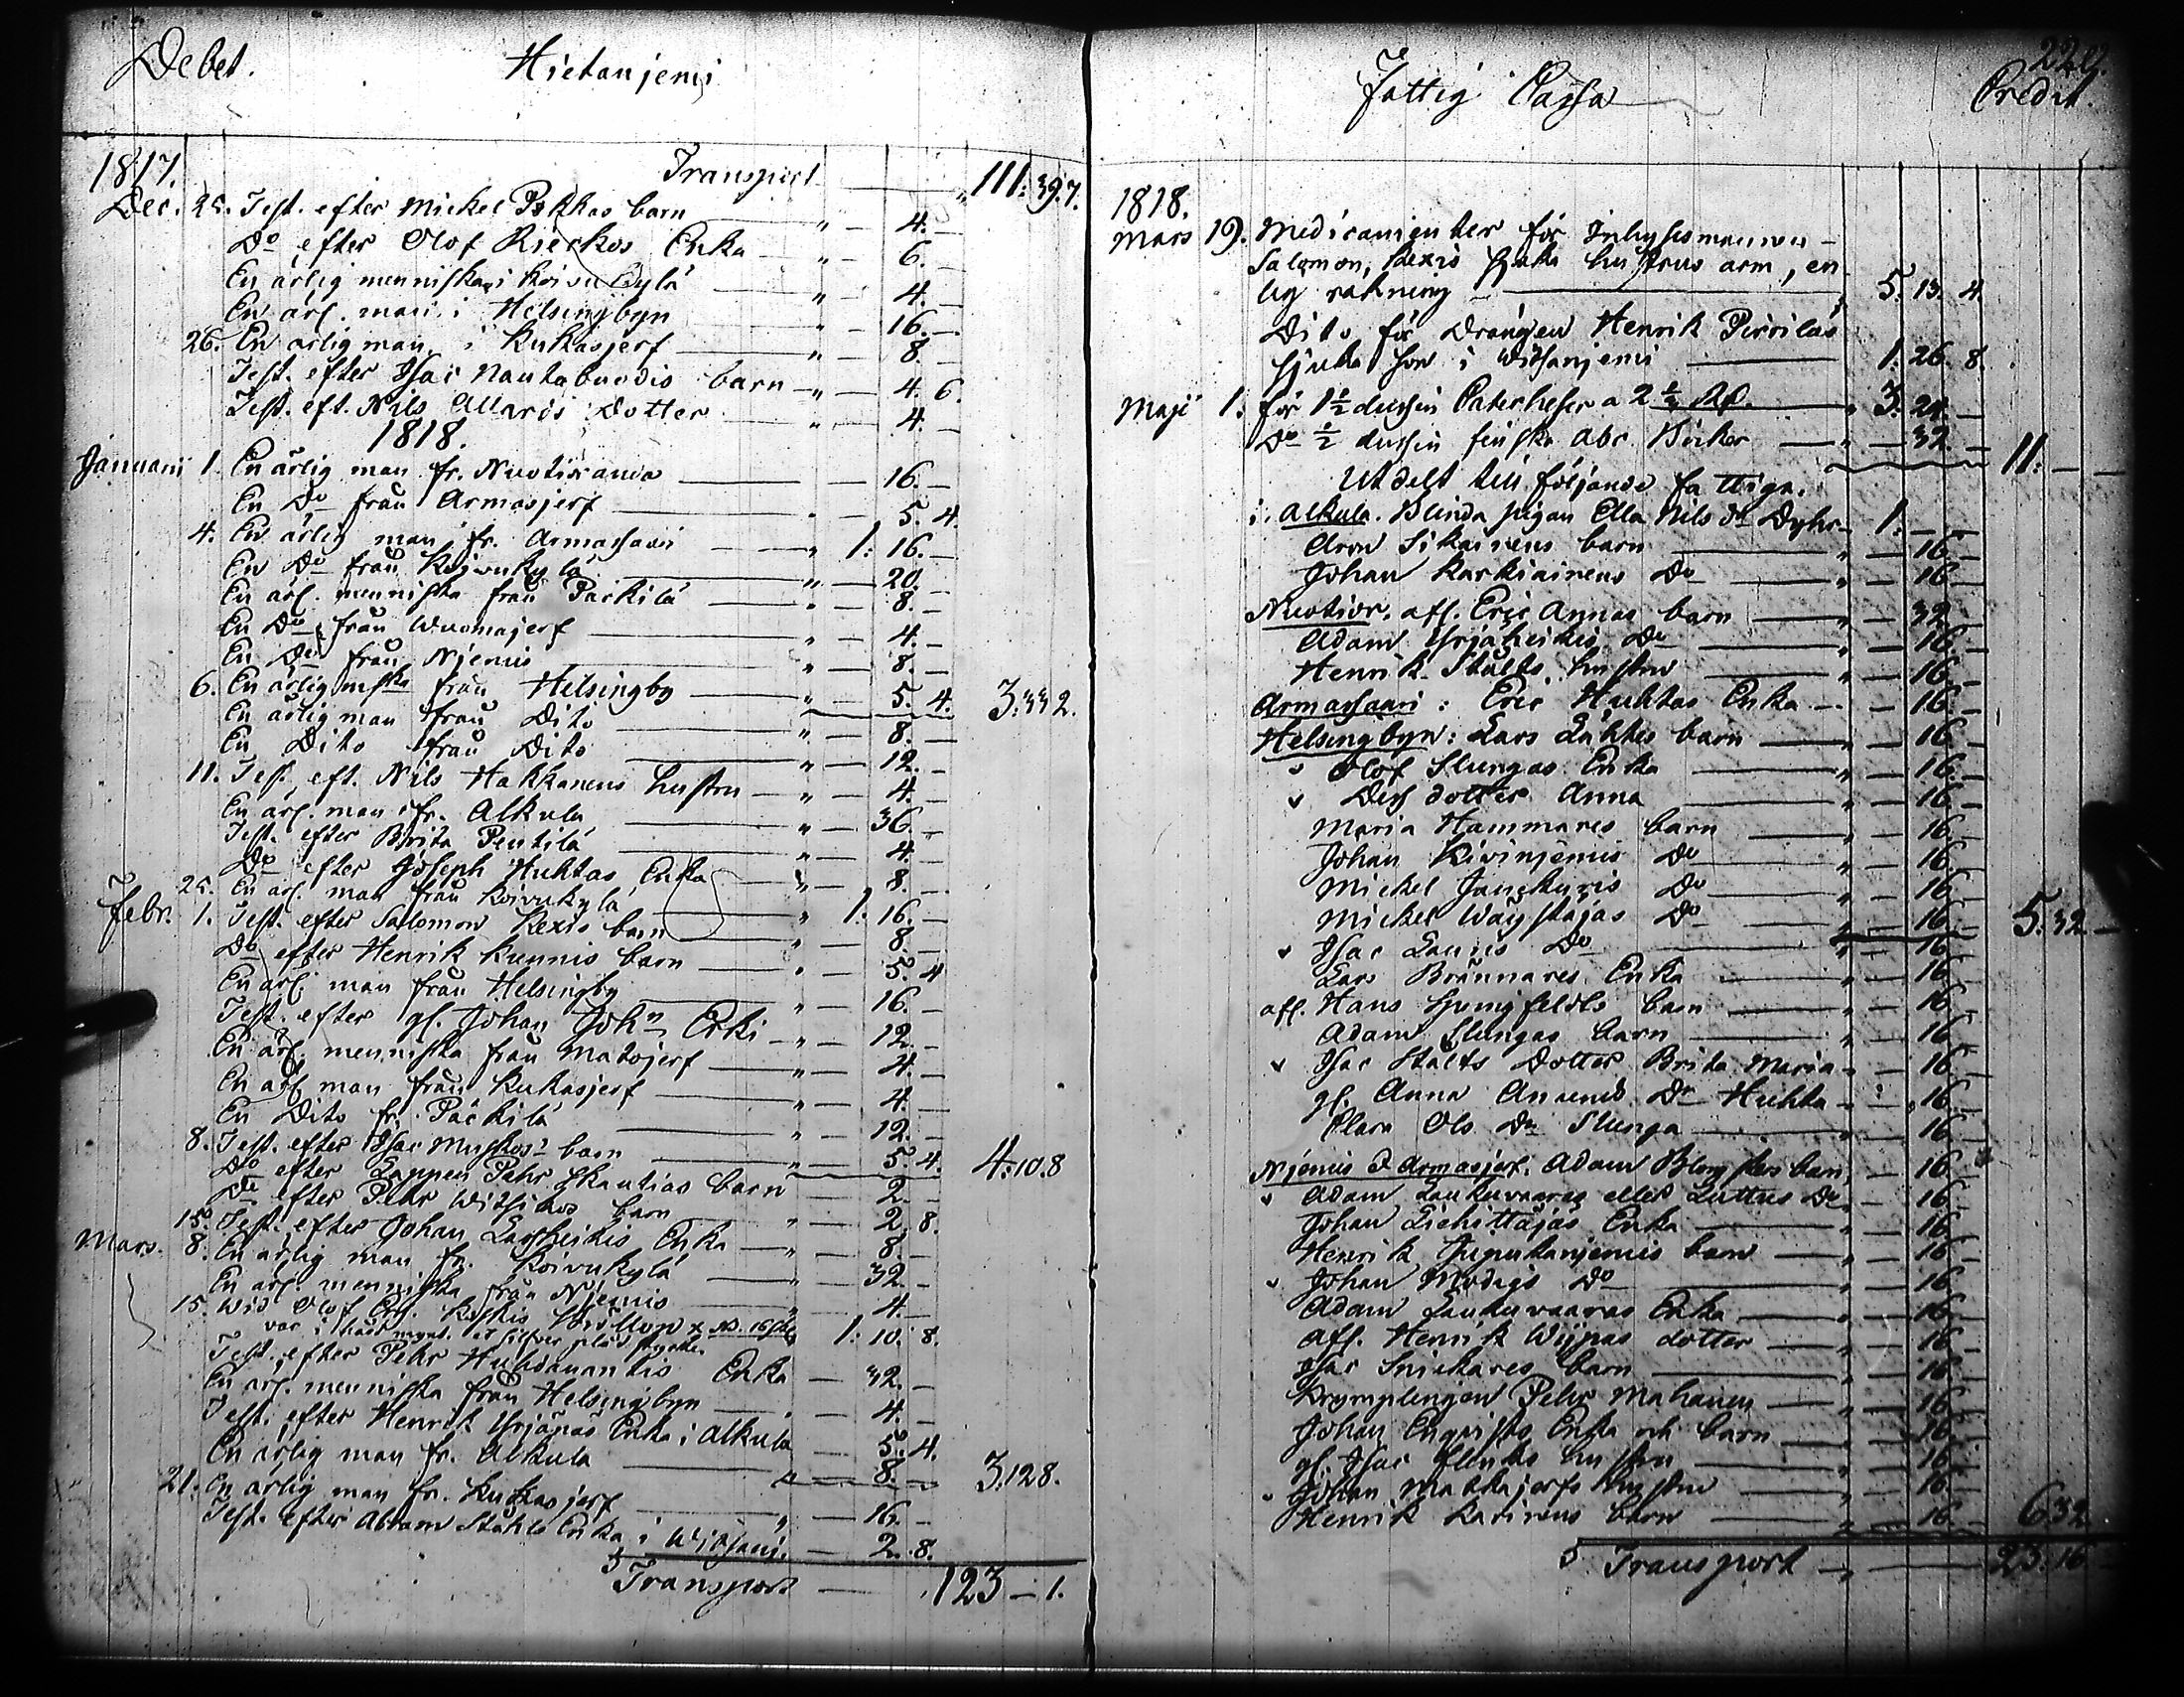 Debet. Hietaniemi
1817. Transport — 111: 39. 7.
Dec. 25. Test. efter Mickel barn — 4. —
Do efter Olof Rieckos Enka — 6. —
En ärlig menniska i Koivukylä — 4. —
En ärl. man i Helsingbyn — 16. —
26. En ärlig man i Kukasjerf — 8.
Test. efter Isac Nautabuodis barn — 4. 6.
Test. eft. Nils Allards Dotter — 4.
1818.
Januarii 1. En ärlig man fr. Nuotioranda — 16. —
En Do från Armasjerf — 5. 4.
4. En ärlig man fr. Armassaari — 1: 16. —
En Do från Koivukylä — 20. —
En ärl. menniska från Päckilä — 8. —
En Do från Wuomajerf — 4. —
En Do från Niemis — 8. —
6. En ärlig mska från Helsingby — 5. 4. 3: 33 2.
En ärlig man från Dito — 8. —
En Dito från Dito — 12. —
11. Test. eft. Nils Hakkanens hustru — 4. —
En ärl. man fr. Alkula — 36. —
Test. efter Brita Pentilä — 4. —
Do efter Joseph Huhtas Enka — 8. —
25. En ärl. man från Koivukylä — 1: 16. —
Febr. 1. Test. efter Salomon Kexis barn — 8. —
Do efter Henrik Kunnis barn — 5. 4
En ärl. man från Helsingby — 16. —
Test. efter gl. Johan Johns Erki — 12. —
En ärl. menniska från Matojerf — 4. —
En ärl man från Kukasjerf — 4. —
En Dito fr. Päckilä — 12. —
8. Test. efter Isac Muskos barn — 5. 4. 4: 10. 8
Do efter Lappen Pehr Skautias barn — 2 —
Do efter Pehr Witsikos barn — 2. 8.
15. Test. efter Johan Larsheikis Enka — 8. —
Mars. 8. En ärlig man fr. Koivukylä — 32. —
En ärl. menniska från Niemis — 4. —
15. Wid Olof Er. Koskis Bröllop 1: 10. 8.
Test. efter Pehr Enka — 32. —
En ärl. menniska från Helsingbyn — 4. —
Test. efter Henrik Yrjänäs Enka i Alkula — 5. 4.
En ärlig man fr. Alkula — 8. — 3: 12 8.
21. En ärlig man fr. Kukasjerf — 16. —
Test. efter Abram Ståhls Enka i — 2. 8.
Transport — 123 — 1.
Fattig Cassa Credit.
1818.
Mars 19. Medicamenter för Inhysesmannen
Salomon Kexis sjuka hustrus arm, en
lig räkning — 5. 13. 4.
Dito för Drängen Henrik Pirrilas
sjuka son i Witsaniemi — 1. 26. 8.
Maji 1. för 1 1/2 dussin Catecheser a 2 1/2 Rd. — 3. 24. —
Do 1/2 dussin finska abc Böcker — 32. — 11: — —
Utdelt till följande fattiga.
i Alkula. Blinda pigan Ella Nils Dr Dyhr — 1. — —
Aron Sikainens barn — 16
Johan Karkiainens Do — 16
Nuotior. afl. Eric Annas barn — 32 —
Adam Yrjäheikis Do — 16 —
Henrik Stålts hustru — 16 —
Armassaari: Eric Huhtas Enka — 16 —
Helsingbyn: Lars Lahtis barn — 16 —
Olof Slungas Enka — 16 —
Dess dotter Anna — 16 —
Maria Hammares barn — 16 —
Johan Kiviniemis Do — 16 —
Mickel Do — 16 —
Mickel Do — 16 — 5. 32 —
Isac Lauris Do — 16 —
Lars Brännares Enka — 16 —
afl. Hans Ljungfeldts barn — 16 —
Adam Slungas barn — 16 —
Isac Stålts Dotter Brita Maria — 16 —
gl. Anna Anunds Dr Huhta — 16 —
Clara Ols Dr Slunga — 16 —
Niemis o Armasjerf. Adam Blomsters barn — 16 —
Adam Laukuvaaras eller Luttus Do — 16 —
Johan Enka — 16 —
Henrik barn — 16
Johan Modigs Do — 16
Adam Laukuvaaras Enka — 16
afl. Henrik Wijpas dotter — 16
Isac Snickares barn — 16
Krymplingen Pehr Mahanen — 16
Johan Enqvists Enka och barn — 16
gl. Isac hustru — 16
Johan Matkajerfs hustru — 16
Henrik barn — 16 — 6. 32
Transport — 23. 16